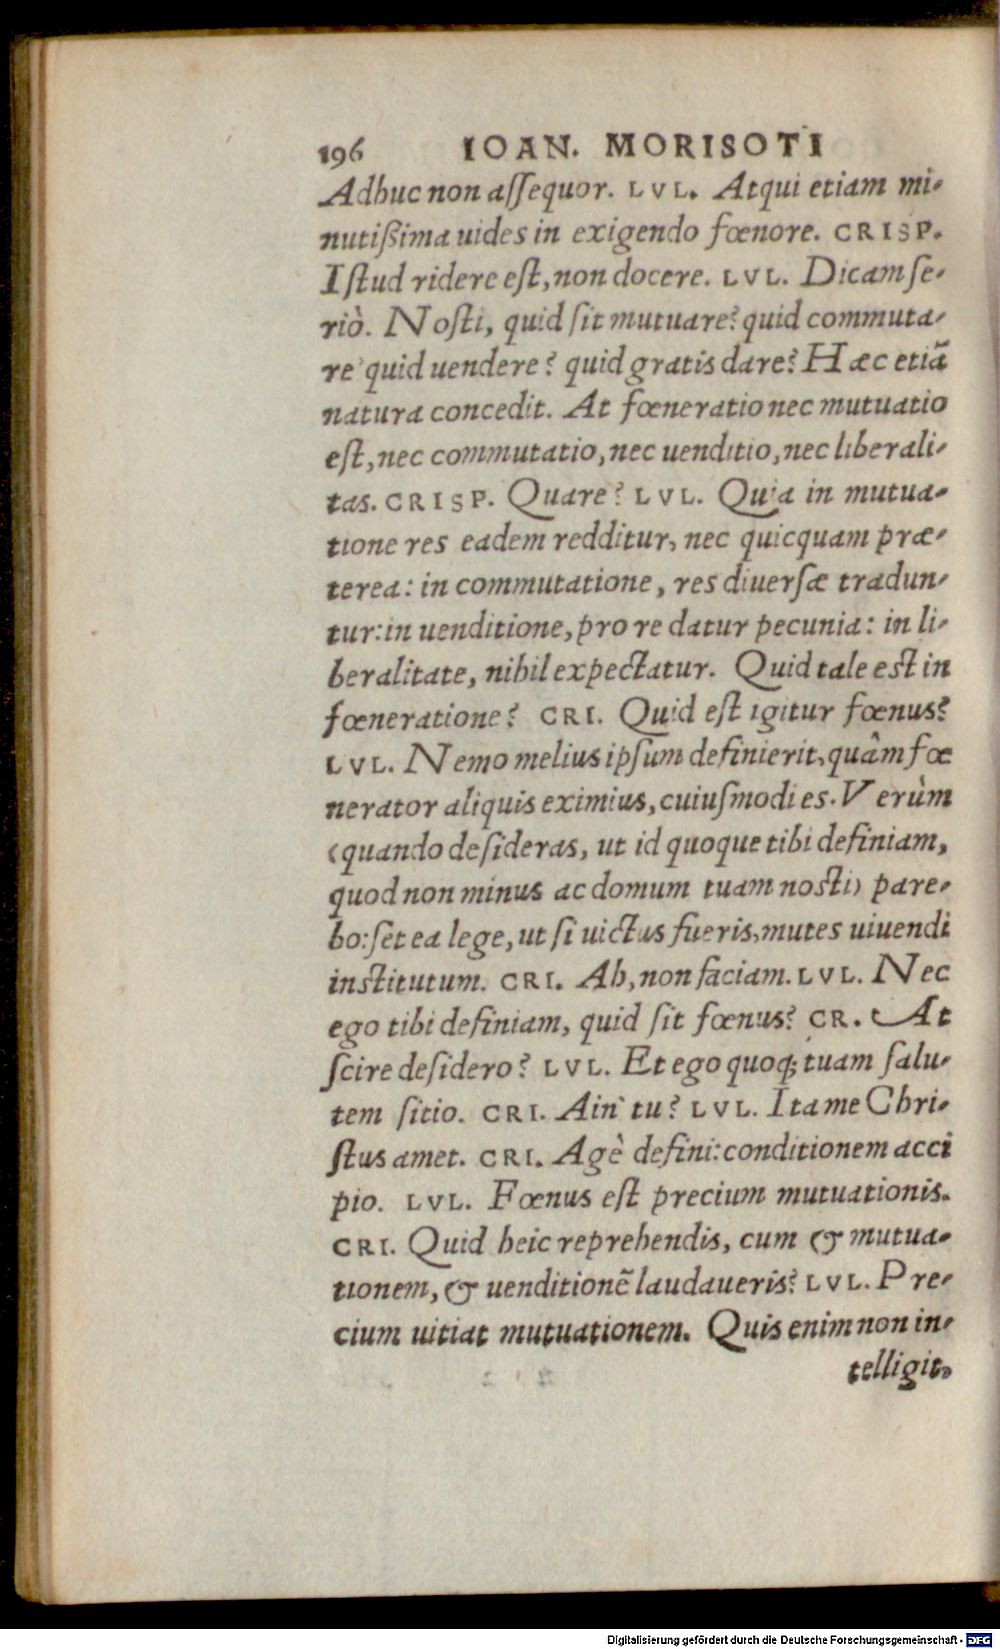 196 IOAN. MORISOTI
Adhuc non aſſequor. LVL. Atqui etiam mi-
nutißima uides in exigendo fœnore. CRISP.
Iſtud ridere eſt, non docere. LVL. Dicam ſe-
riò. Noſti, quid ſit mutuare? quid commuta-
re? quid uendere? quid gratis dare? Hæc etiã
natura concedit. At fœneratio nec mutuatio
eſt, nec commutatio, nec uenditio, nec liberali-
tas. CRISP. Quare? LVL. Quia in mutua-
tione res eadem redditur, nec quicquam præ-
terea: in commutatione, res diuerſæ tradun-
tur: in uenditione, pro re datur pecunia: in li-
beralitate, nihil expectatur. Quid tale eſt in
fœneratione? CRI. Quid eſt igitur fœnus?
LVL. Nemo melius ipſum definierit, quâm fœ
nerator aliquis eximius, cuiuſmodi es. Verùm
(quando deſideras, ut id quoque tibi definiam,
quod non minus ac domum tuam noſti) pare-
bo: ſet ea lege, ut ſi uictus fueris, mutes uiuendi
inſtitutum. CRI. Ah, non faciam. LVL. Nec
ego tibi definiam, quid ſit fœnus? CR. At
ſcire deſidero? LVL. Et ego quoq; tuam ſalu-
tem ſitio. CRI. Ain' tu? LVL. Ita me Chri-
ſtus amet. CRI. Agè defini: conditionem acci
pio. LVL. Fœnus eſt precium mutuationis.
CRI. Quid heic reprehendis, cum & mutua-
tionem, & uenditionẽ laudaueris? LVL. Pre-
cium uitiat mutuationem. Quis enim non in-
telligit,
Digitalisierung gefördert durch die Deutsche Forschungsgemeinschaft - DFG